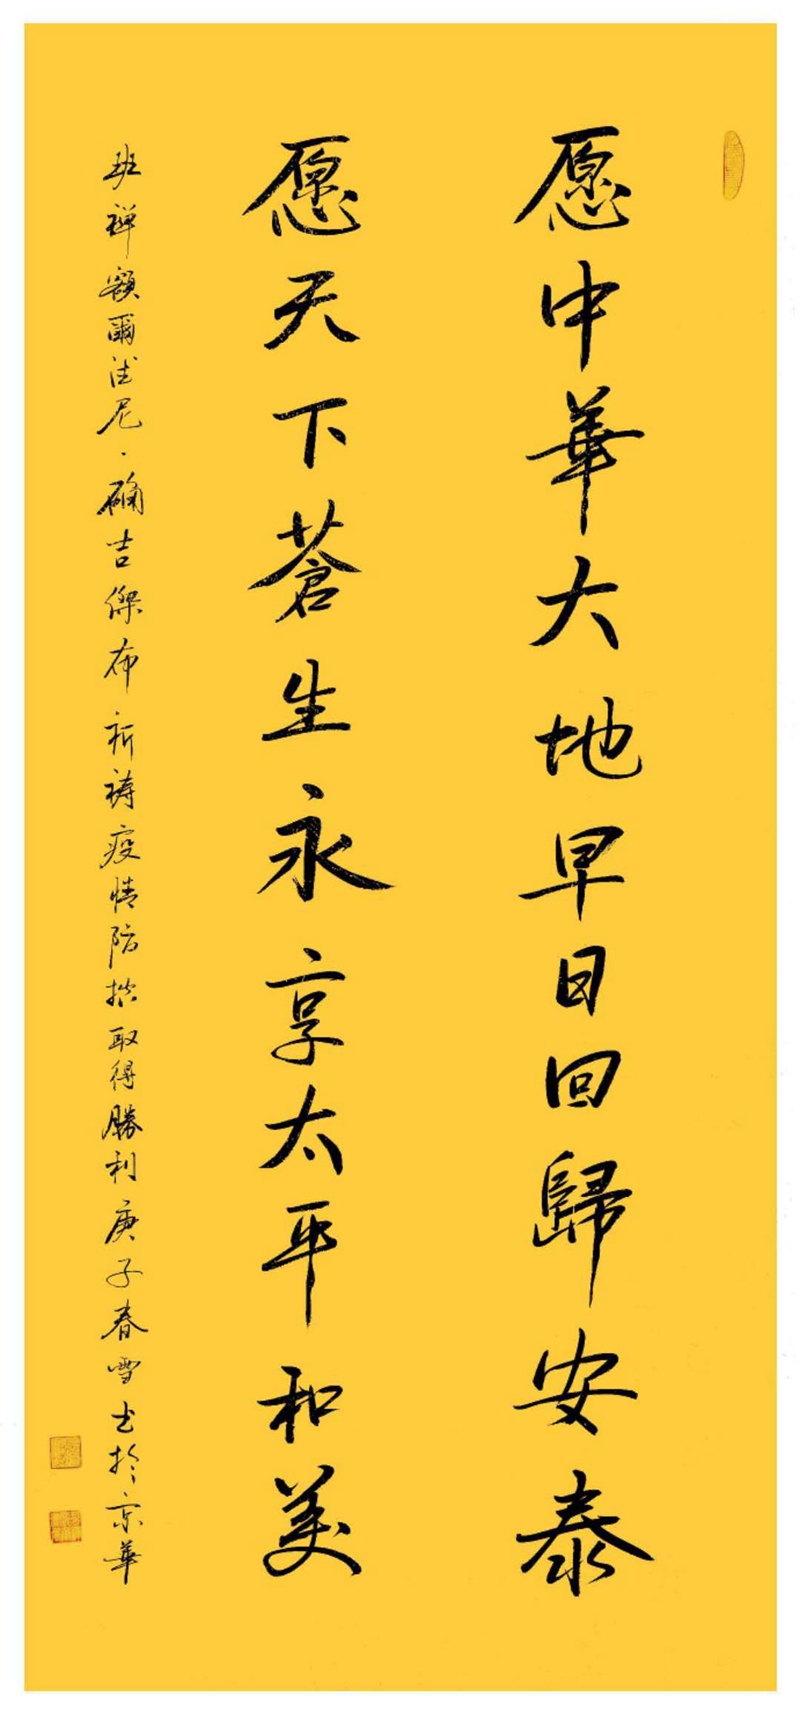 愿中華大地早日回歸安泰
愿天下蒼生永享太平和美
班禅額爾德尼·确吉傑布 祈祷疫情防控取得勝利庚子春雪书於京華